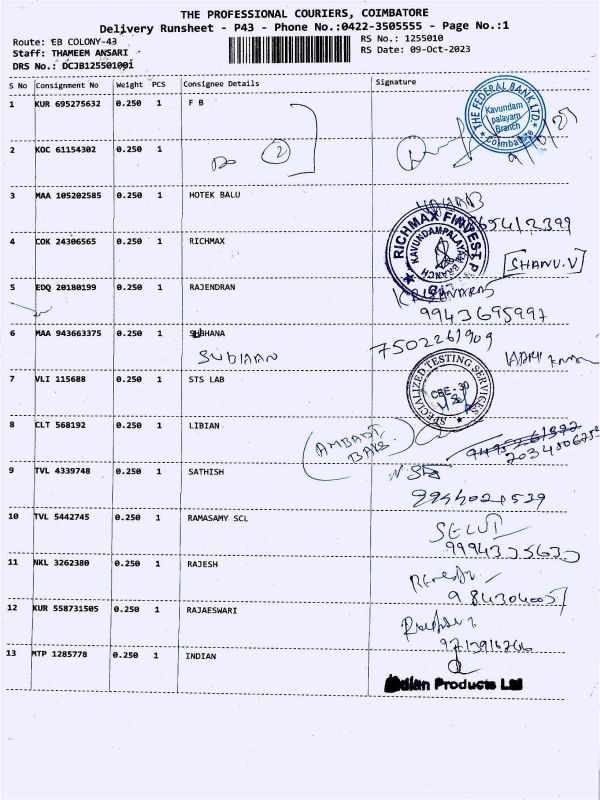 THE PROFESSIONAL COURIERS, COIMBATORE
Delivery Runsheet - P43 - Phone No.:0422-3505555 - Page No.:1
Route: EB COLONY-43
RS No.: 1255010
Staff: THAMEEM ANSARI
RS Date: 09-Oct-2023
DRS No.: DCJB125501001
S No Consignment No Weight PCS Consignee Details Signature
1 KUR 695275632 0.250 1 F B
THE FEDERAL BANK LTD.
Kavundam
palayam
Branch
Coimbatore
2 KOC 61154302 0.250 1
2
3 MAA 105202585 0.250 1 HOTEK BALU
4 COK 24306565 0.250 1 RICHMAX
RICHMAX FINVEST P
KAVUNDAMPALAYAM
BRANCH
SHANU.V
5 EDQ 20180199 0.250 1 RAJENDRAN
9943695997
6 MAA 943663375 0.250 1 SUBHANA
7502261909
7 VLI 115688 0.250 1 STS LAB
SPECIALIZED TESTING SERVICES
CBE - 30
8 CLT 568192 0.250 1 LIBIAN
9 TVL 4339748 0.250 1 SATHISH
10 TVL 5442745 0.250 1 RAMASAMY SCL
11 NKL 3262380 0.250 1 RAJESH
12 KUR 558731505 0.250 1 RAJAESWARI
13 MTP 1285778 0.250 1 INDIAN
Indian Products Ltd